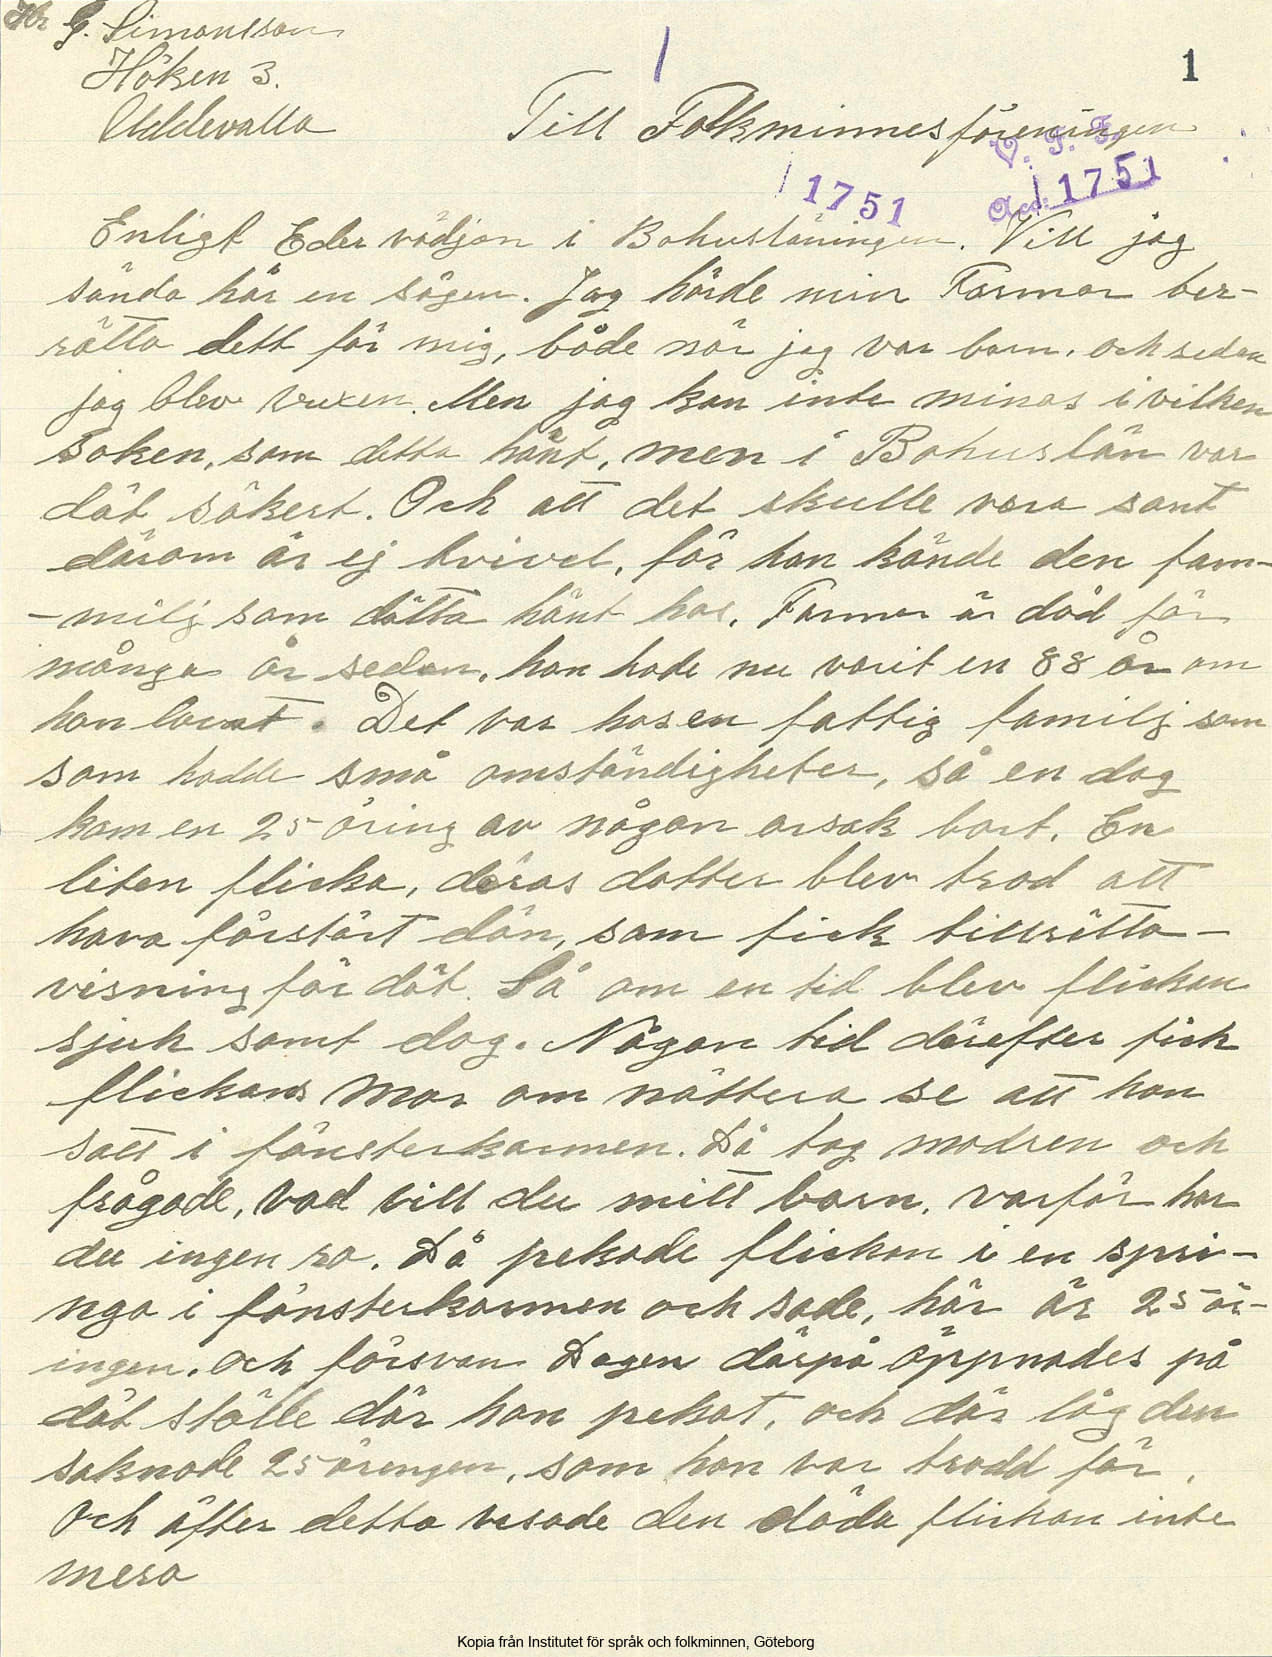 Hr G. Simonsson
Höken 3.
Uddevalla
1
Till Folkminnesföreningen
V. F. F.
1751
Acc. 1751
Enligt Eder vädjan i Bohusläningen. Vill jag
sända här en sägen. Jag hörde min Farmor ber-
rätta dett för mig, både när jag var barn. och sedan
jag blev vuxen. Men jag kan inte minas i vilken
soken, som detta hänt, men i Bohuslän var
dät säkert. Och att det skulle vara sant
därom är ej tvivel, för hon kände den fam-
-milj som dätta hänt hos. Farmor är död för
många år sedan, hon hade nu varit en 88 år om
hon levat. Det var hos en fattig familj som
som hadde små omständigheter, så en dag
kom en 25 öring av någon orsak bort. En
liten flicka, deras dotter blev trod att
hava förstört dän, som fick tillrätta-
visning för dät. Så om en tid blev flickan
sjuk samt dog. Någon tid därefter fick
flickans Mor om nättera se att hon
satt i fönsterkarmen. Då tog modren och
frågade, vad vill du mitt barn, varför har
du ingen ro. Då pekade flickan i en spri-
nga i fönsterkarmen och sade, här är 25 ör-
ingen. och försvan Dagen därpå öppnades på
dät ställe där hon pekat, och där låg den
saknade 25 öringen, som hon var trodd för.
Och äfter detta visade den döda flickan inte
mera
Kopia från Institutet för språk och folkminnen, Göteborg